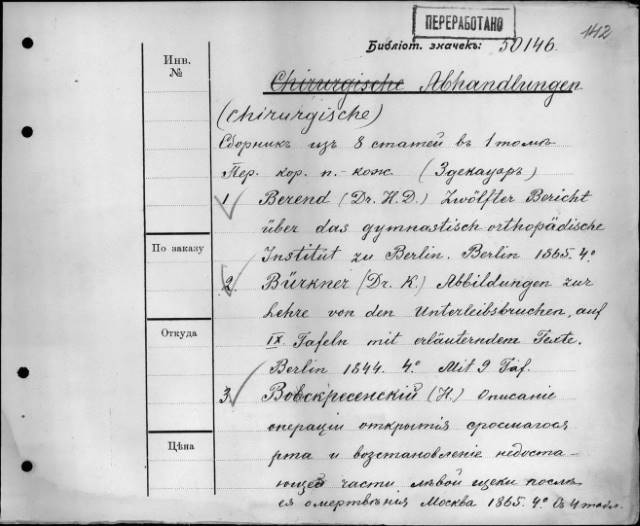 ПЕРЕРАБОТАНО
142
Библіот. значекъ: 50146
Инв.
№
Chirurgische Abhandlungen
(Chirurgische)
Сборникъ изъ 8 статей въ 1 томѣ
Пер. кор. п.-кож. (Здекауэръ)
1 Berend (Dr. H.D.) Zwölfter Bericht
über das gymnastisch orthopädische
Institut zu Berlin. Berlin 1865. 4°
По заказу
2. Bürkner (Dr. K.) Abbildungen zur
Lehre von den Unterleibsbruchen, auf
IX Tafeln mit erläuterndem Texte.
Откуда
Berlin 1844. 4° Mit 9 Taf.
3. Воскресенскій (Н.) Описаніе
операціи открытія сросшагося
рта и возстановленіе недоста-
Цѣна
ющей части лѣвой щеки послѣ
ея омертвѣнія Москва 1865. 4° Съ 4 табл.